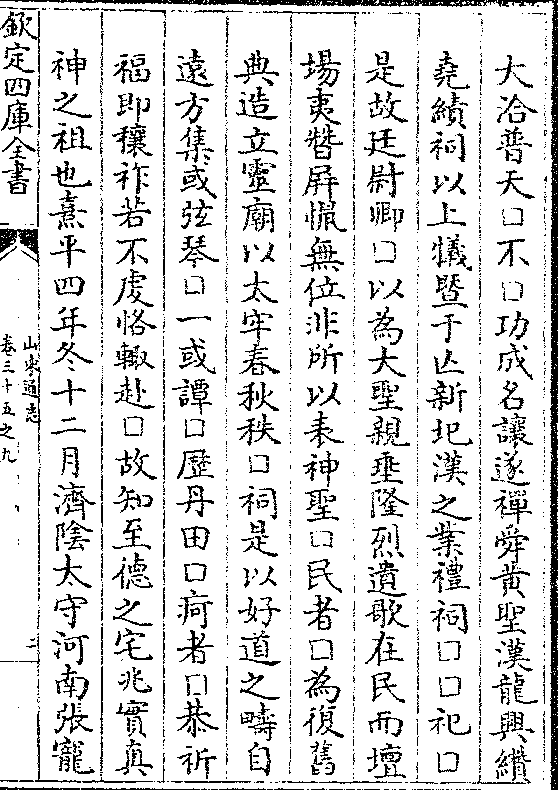 大洽普天口不口功成名讓遂禪舜黃聖漢龍興纘
堯績祠以上犧曁于亾新圯漢之業禮祠口口祀口
是故廷尉卿口以為大聖親垂隆烈遺歌在民而壇
塲夷替屏懾無位非所以表神聖口民者口為復舊
典造立靈廟以太牢春秋秩口祠是以好道之疇自
遠方集或弦琴口一或譚口歴丹田口疴者口恭祈
福即穰祚若不虔恪輙赴口故知至德之宅兆實真
神之祖也熹平四年冬十二月濟陰太守河南張寵
欽定四庫全書
山東通志
卷三十五之九
二